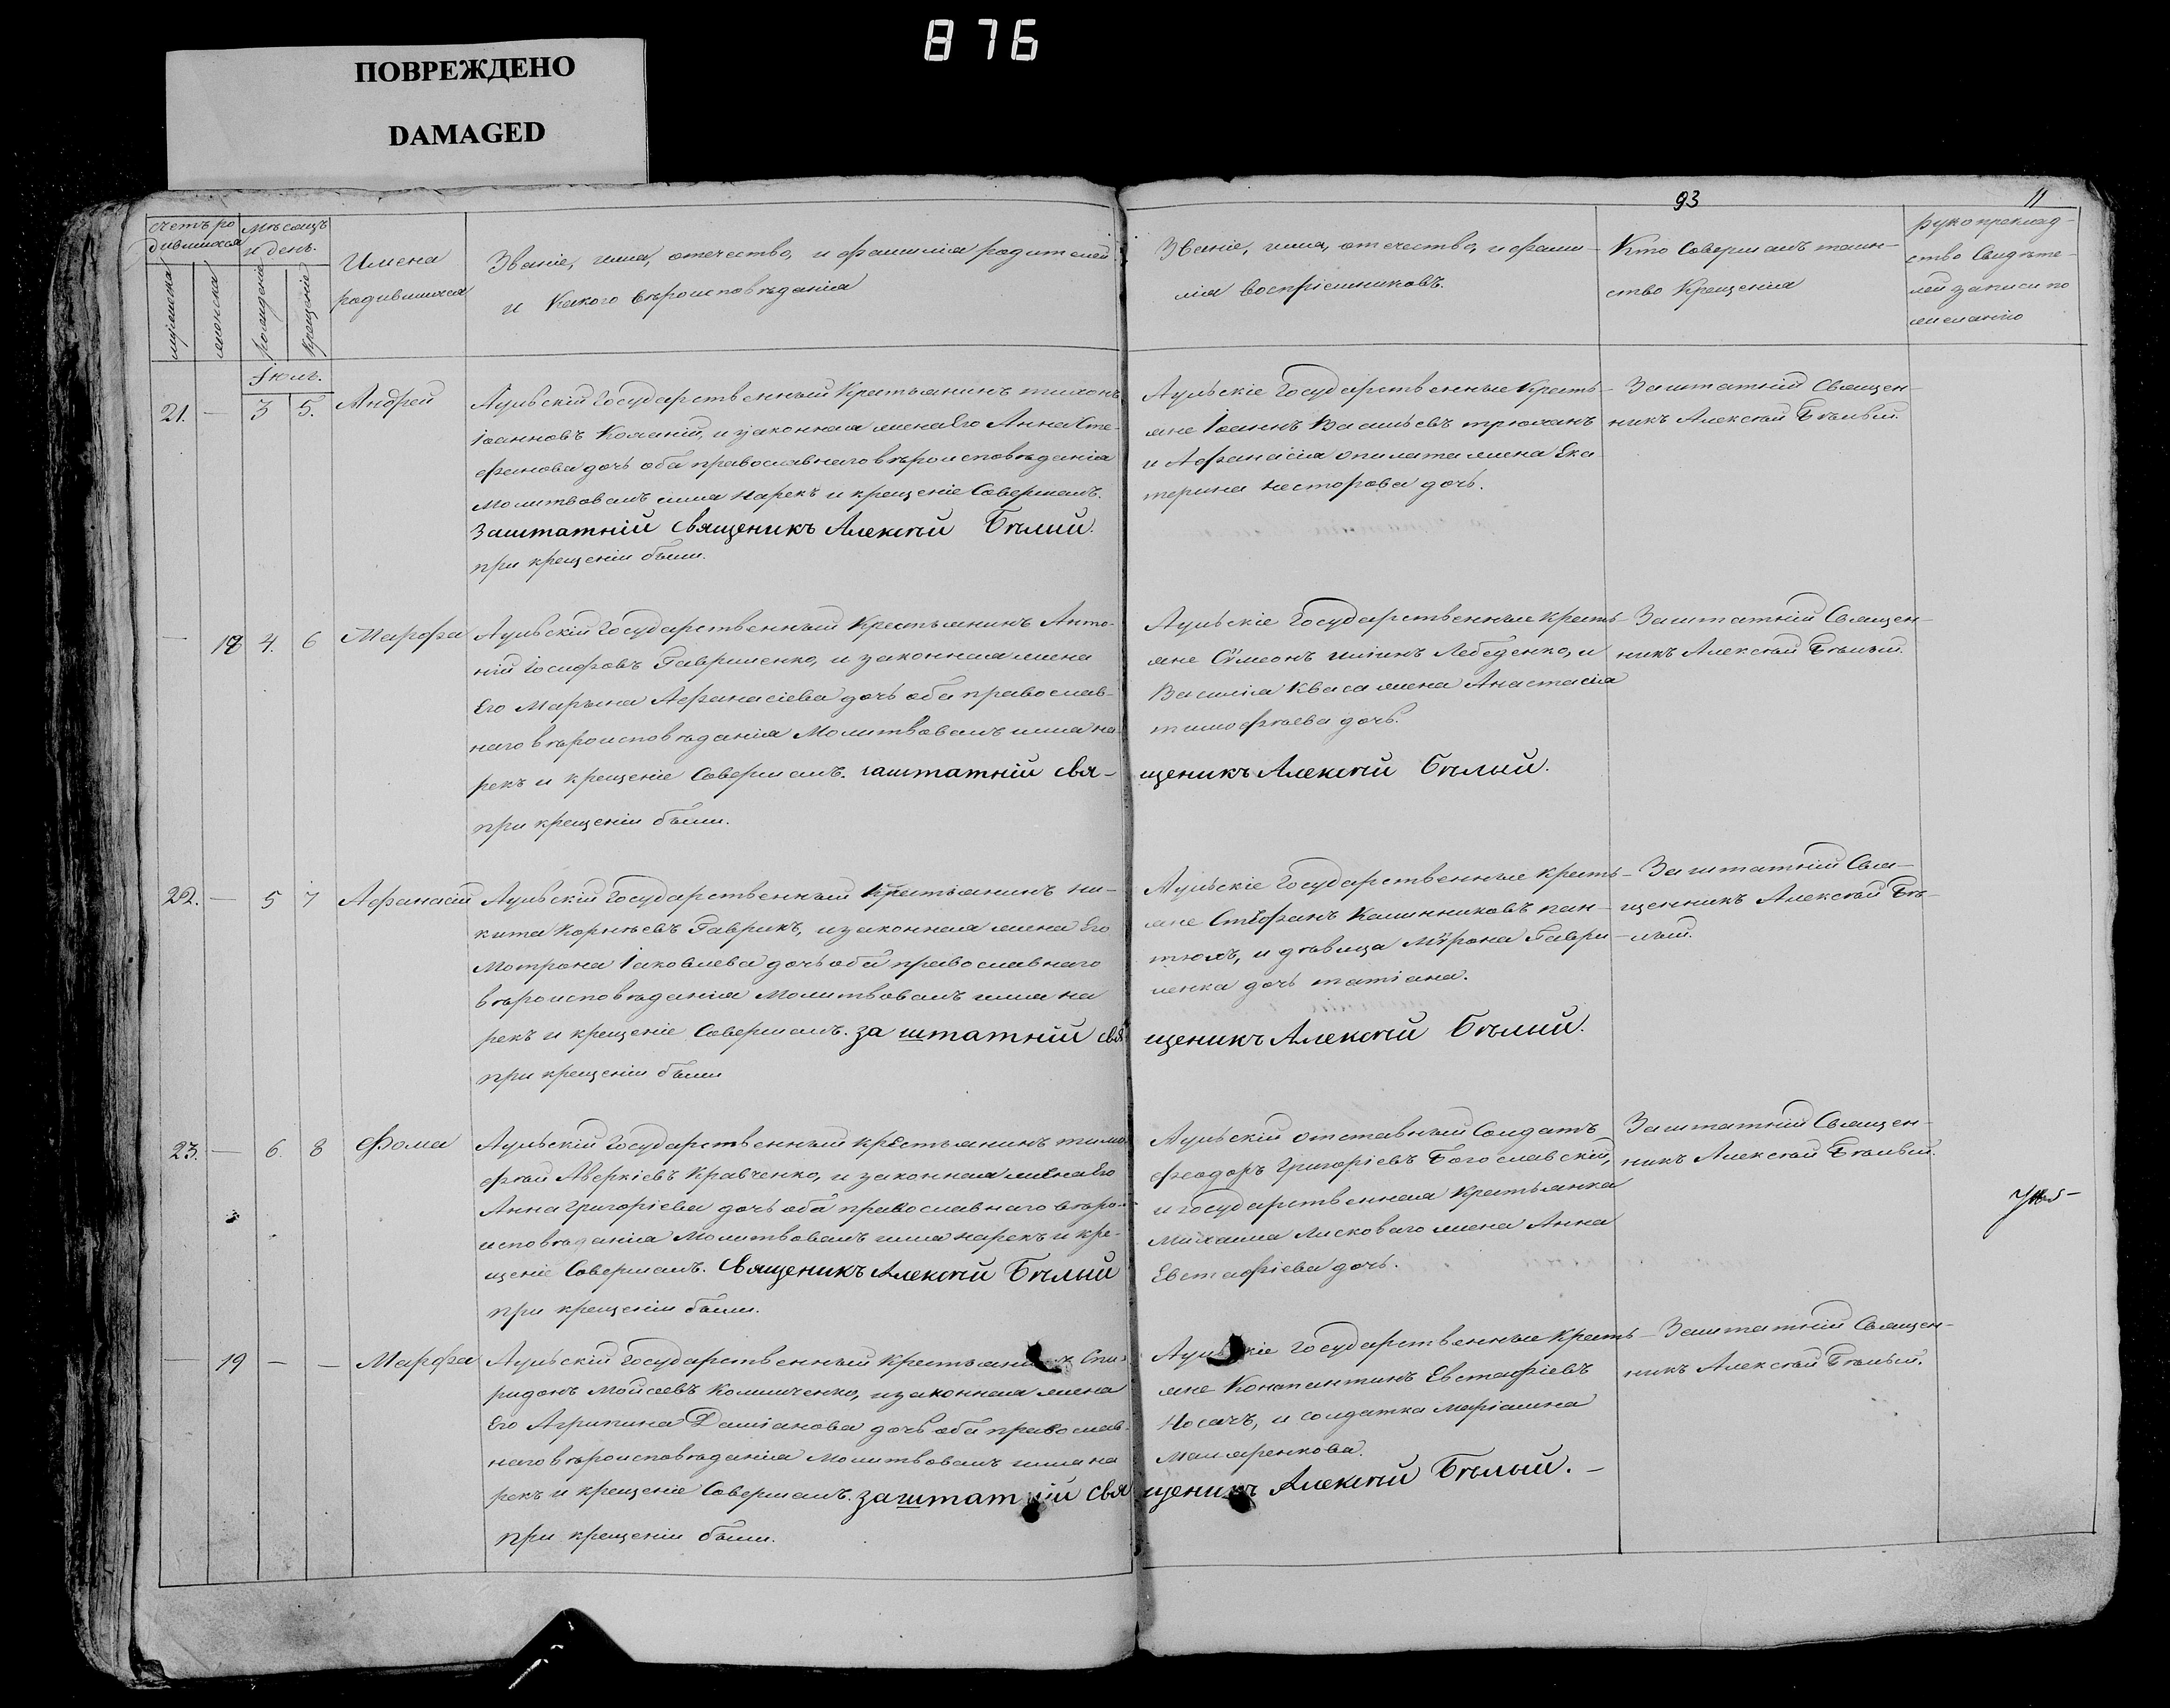 876
ПОВРЕЖДЕНО
DAMAGED
93
11
Счетъ ро
дившихся
Мѣсяцъ
и день.
мужеска
женска
рожденіе
Крещеніе
Имена
родившихся
Званіе, имя, отечество, и фамилія родителей
и Какого вѣроисповѣданія
Званіе, имя, отечество, и фами-
лія воспріемниковъ.
Кто Совершалъ таин-
ство Крещенія
рукоприклад-
ство Свидѣте-
лей записи по
желанію
Іюль.
21. — 3 5. Андрей
Аульскій Государственный Крестьянинъ тихонъ
Іоанновъ и законная жена Его Анна Сте-
фанова дочь оба православнаго вѣроисповѣданія
Молитвовалъ имя Нарекъ и крещеніе Совершалъ.
Заштатній священикъ Алексѣй Бѣлий.
при крещеніи были.
Аульскіе Государственные Кресть-
яне Іоаннъ
и Афанасія жена Ека
терина несторова дочь.
Заштатній Священ-
никъ Алексѣй Бѣлый.
— 18 4. 6 Марфа
Аульскій Государственный Крестьянинъ Анто-
ній Іосифовъ Гавриленко, и законная жена
Его Марьяна Афанасіева дочь оба православ-
наго вѣроисповѣданія Молитвовалъ имя на-
рекъ и крещеніе Совершалъ. заштатній свя-
при крещеніи были.
Аульскіе Государственные Кресть-
яне Сѵмеонъ иліинъ Лебеденко, и
Василія Кваса жена Анастасія
тимофѣева дочь.
щеникъ Алексѣй Бѣлый.
Заштатній Священ-
никъ Алексѣй Бѣлый.
22. — 5 7 Афанасій
Аульскій Государственный Крестьянинъ ни-
кита Корнѣевъ Гаврикъ, и законная жена Его
Мотрона Іаковлева дочь оба православнаго
вѣроисповѣданія Молитвовалъ имя на
рекъ и крещеніе Совершалъ. за штатній свя
при крещеніи были
Аульскіе Государственные Кресть-
яне Стефанъ Калинниковъ пан-
тюхъ, и дѣвица Мѵрона Гаври-
ленка дочь татіана.
щеникъ Алексѣй Бѣлий.
Заштатній Свя-
щенникъ Алексѣй Бѣ-
лый.
23. — 6. 8 Фома
Аульскій Государственный крестьянинъ тимо
фѣй Аверкіевъ Кравченко, и законная жена Его
Анна Григоріева дочь оба православнаго вѣро-
исповѣданія Молитвовалъ имя нарекъ и кре-
щеніе Совершалъ. Священикъ Алексѣй Бѣлый
при крещеніи были.
Аульскій отставный Солдатъ
феодоръ Григоріевъ Богославскій,
и государственная Крестьянка
Михаила Лисковаго жена Анна
Евстафіева дочь.
Заштатній Священ-
никъ Алексѣй Бѣлый.
— 19 — — Марфа
Аульскій Государственный Крестьянинъ Спи-
ридонъ Моисеевъ Коломиченко, и законная жена
Его Агрипина Даміанова дочь оба православ-
наго вѣроисповѣданія Молитвовалъ имя на
рекъ и крещеніе Совершалъ. заштатній свя
при крещеніи были.
Аульскіе Государственные Кресть-
яне Константинъ Евстафіевъ
Носачъ, и солдатка Маріамна
Маляренкова.
щеникъ Алексѣй Бѣлый. —
Заштатній Священ-
никъ Алексѣй Бѣлый.